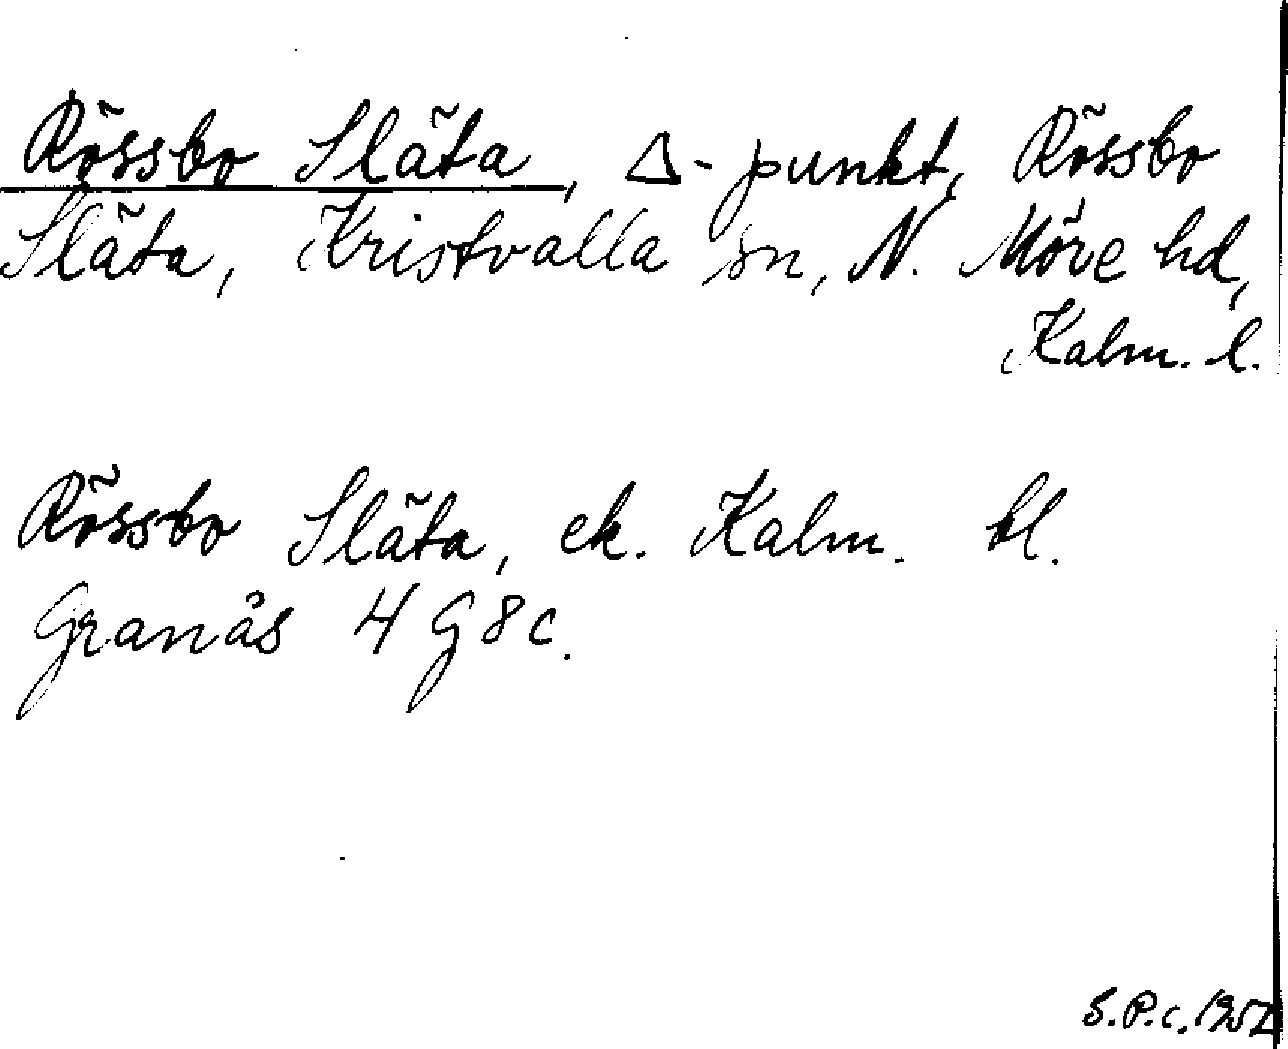 Rössbo Släta, Δ-punkt, Rössbo
Släta, Kristvalla sn, N. Möre hd,
Kalm. l.
Rössbo Släta, ek. Kalm. bl.
Granås 4 G 8 c.
S.P.c. 1952